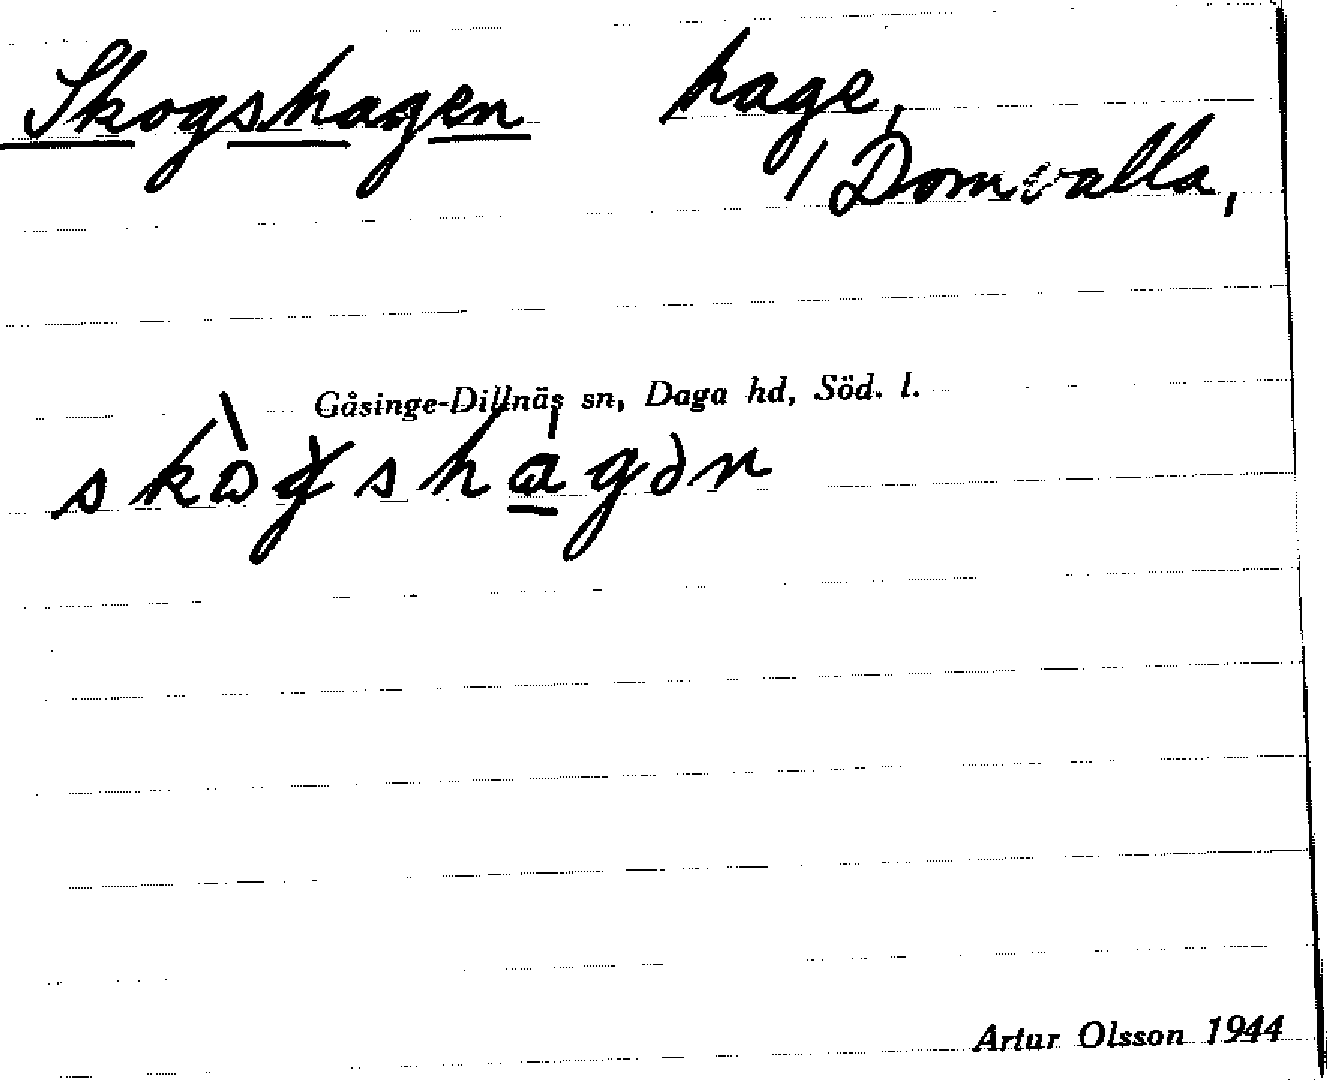 Skogshagen hage,
/ Domvalla,
Gåsinge-Dillnäs sn, Daga hd, Söd. l.
Artur Olsson 1944